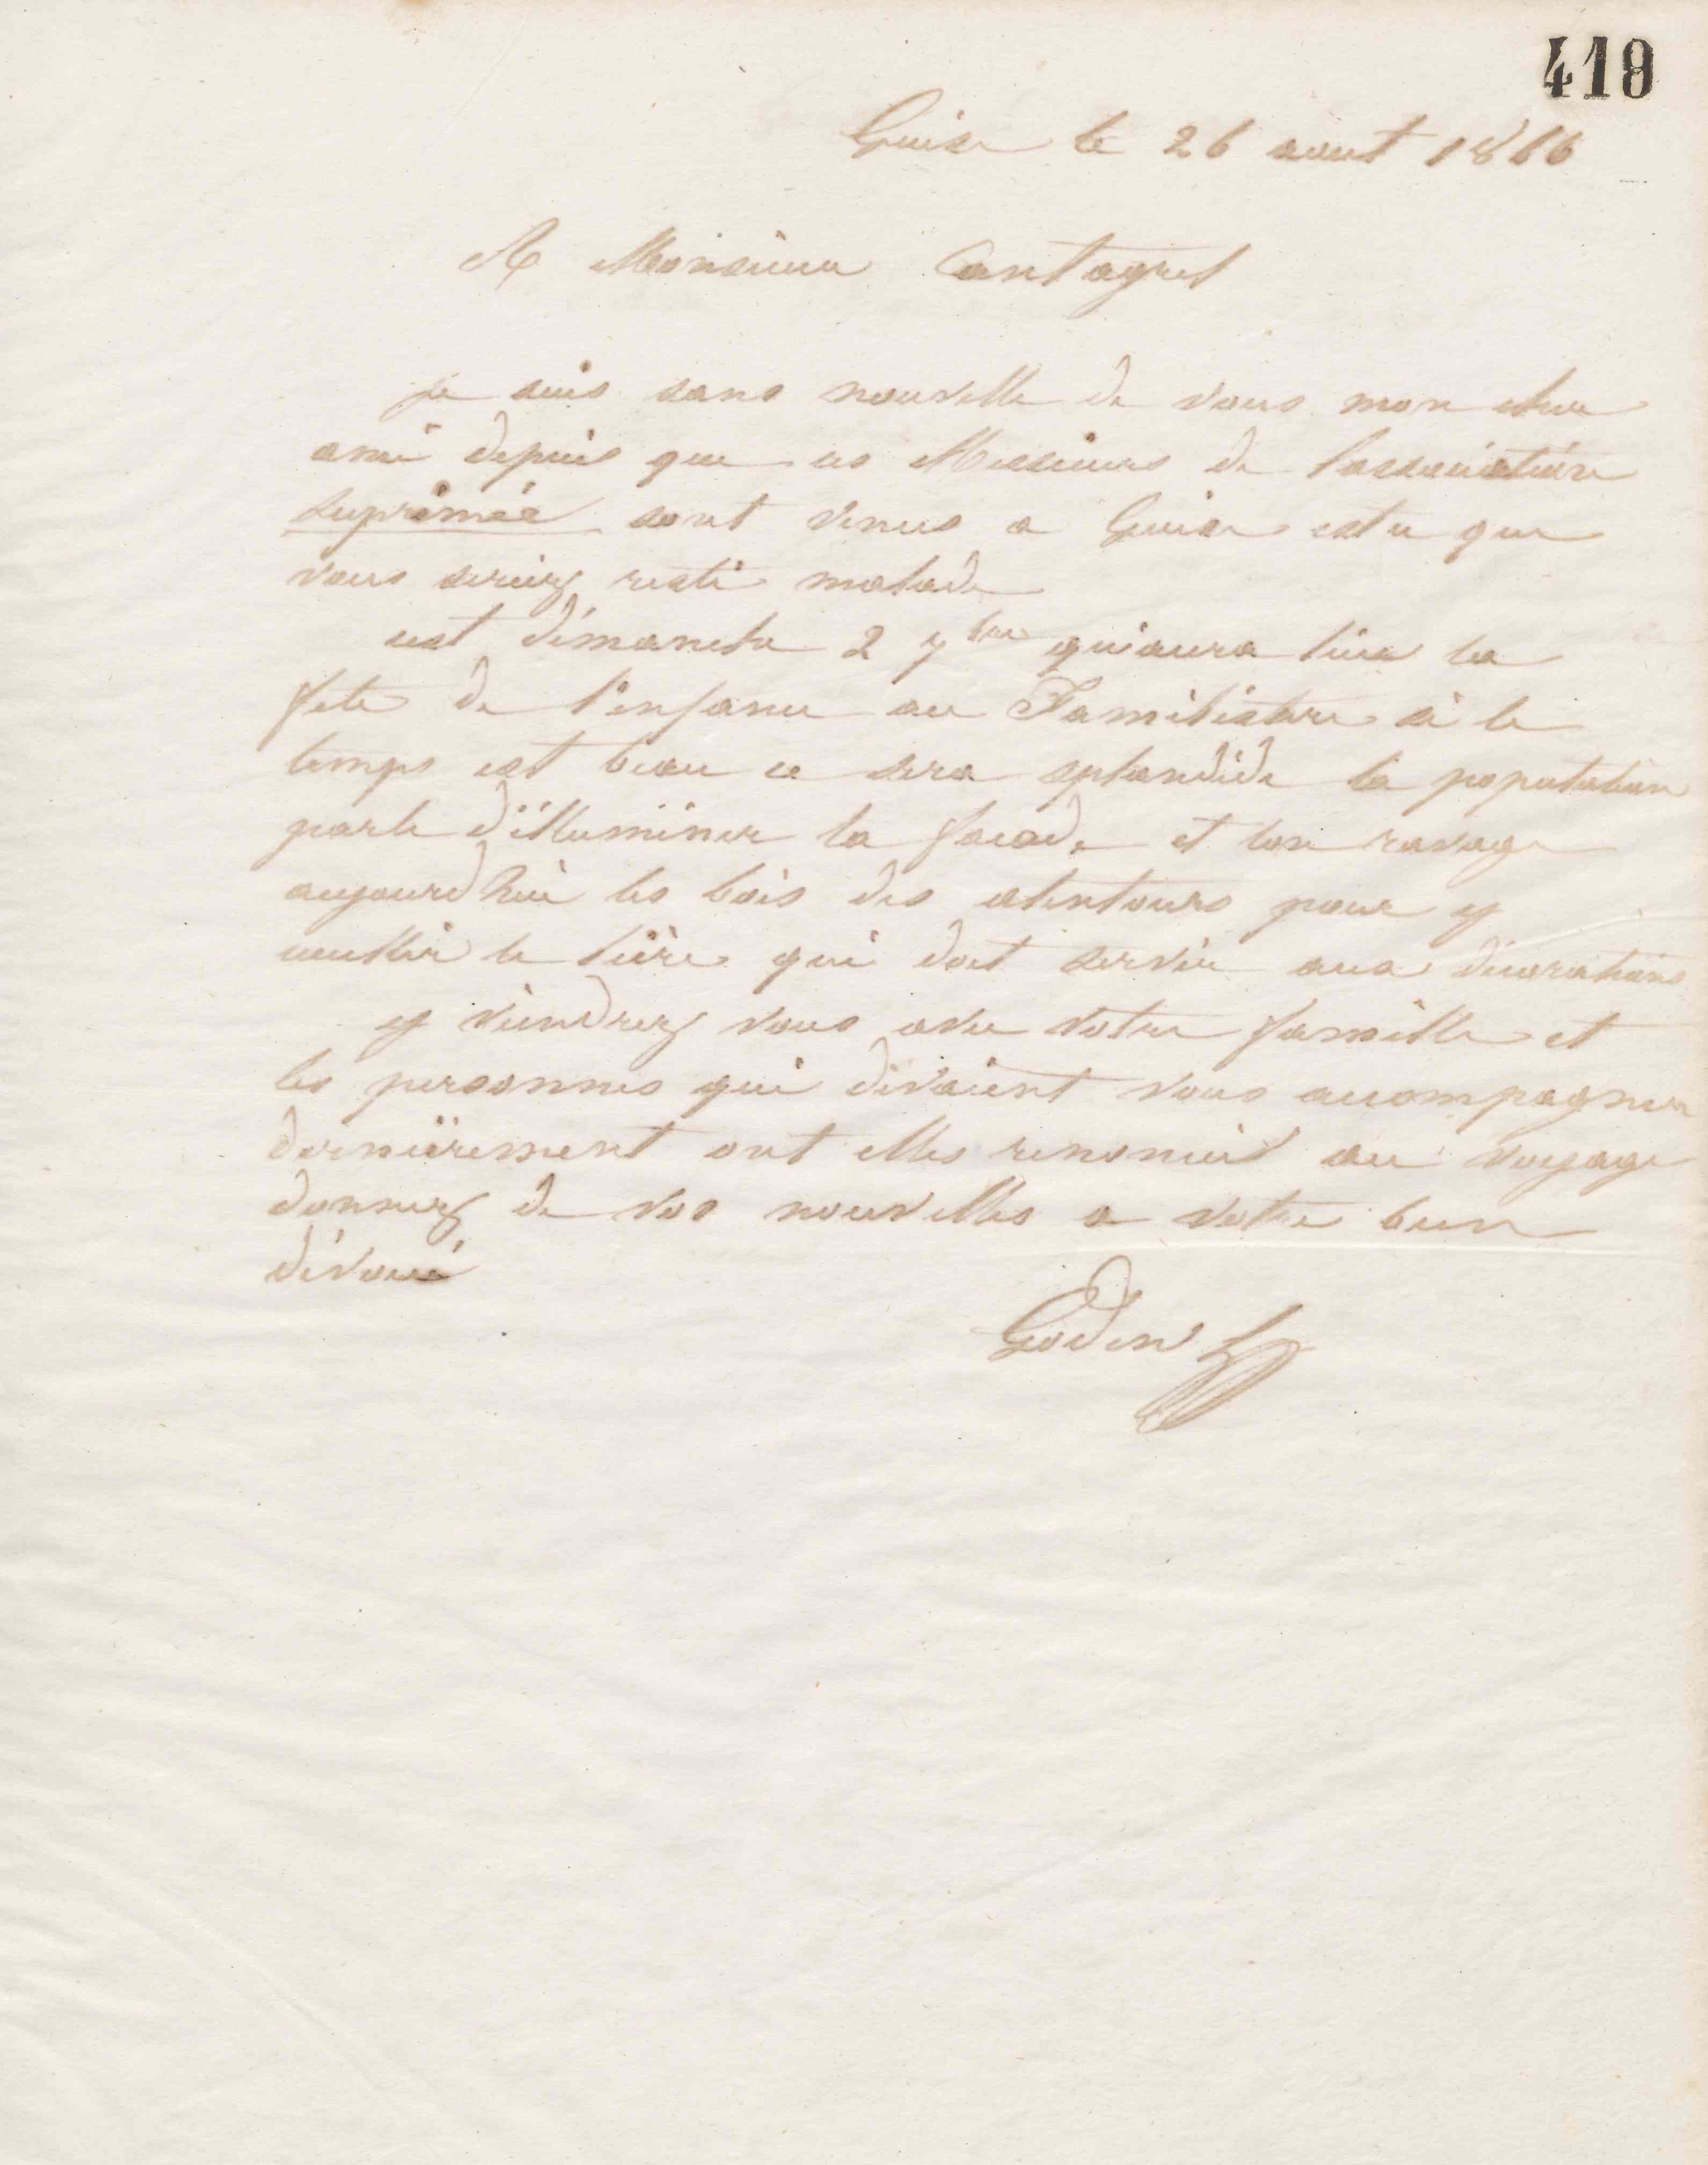 419
Guise le 26 aout 1866
A Monsieur Cantagrel
je suis sans nouvelle de vous mon cher
ami depuis que ces Messieurs de lassociation
suprimée sont venus a Guise est ce que
vous seriez resté malade
cest dimanche 2 7bre qu'aura lieu la
fete de l'enfance au Familistere si le
temps est beau ce sera splandide la population
parle d'illuminer la facade et lon ravage
aujourdhui les bois des alentours pour y
cueillir le lière qui doit servir aux décorations
y viendrez vous avec votre famille et
les personnes qui devaient vous accompagner
dernièrement ont elles renoncées au voyage
donnez de vos nouvelles a votre bien
dévoué
Godin